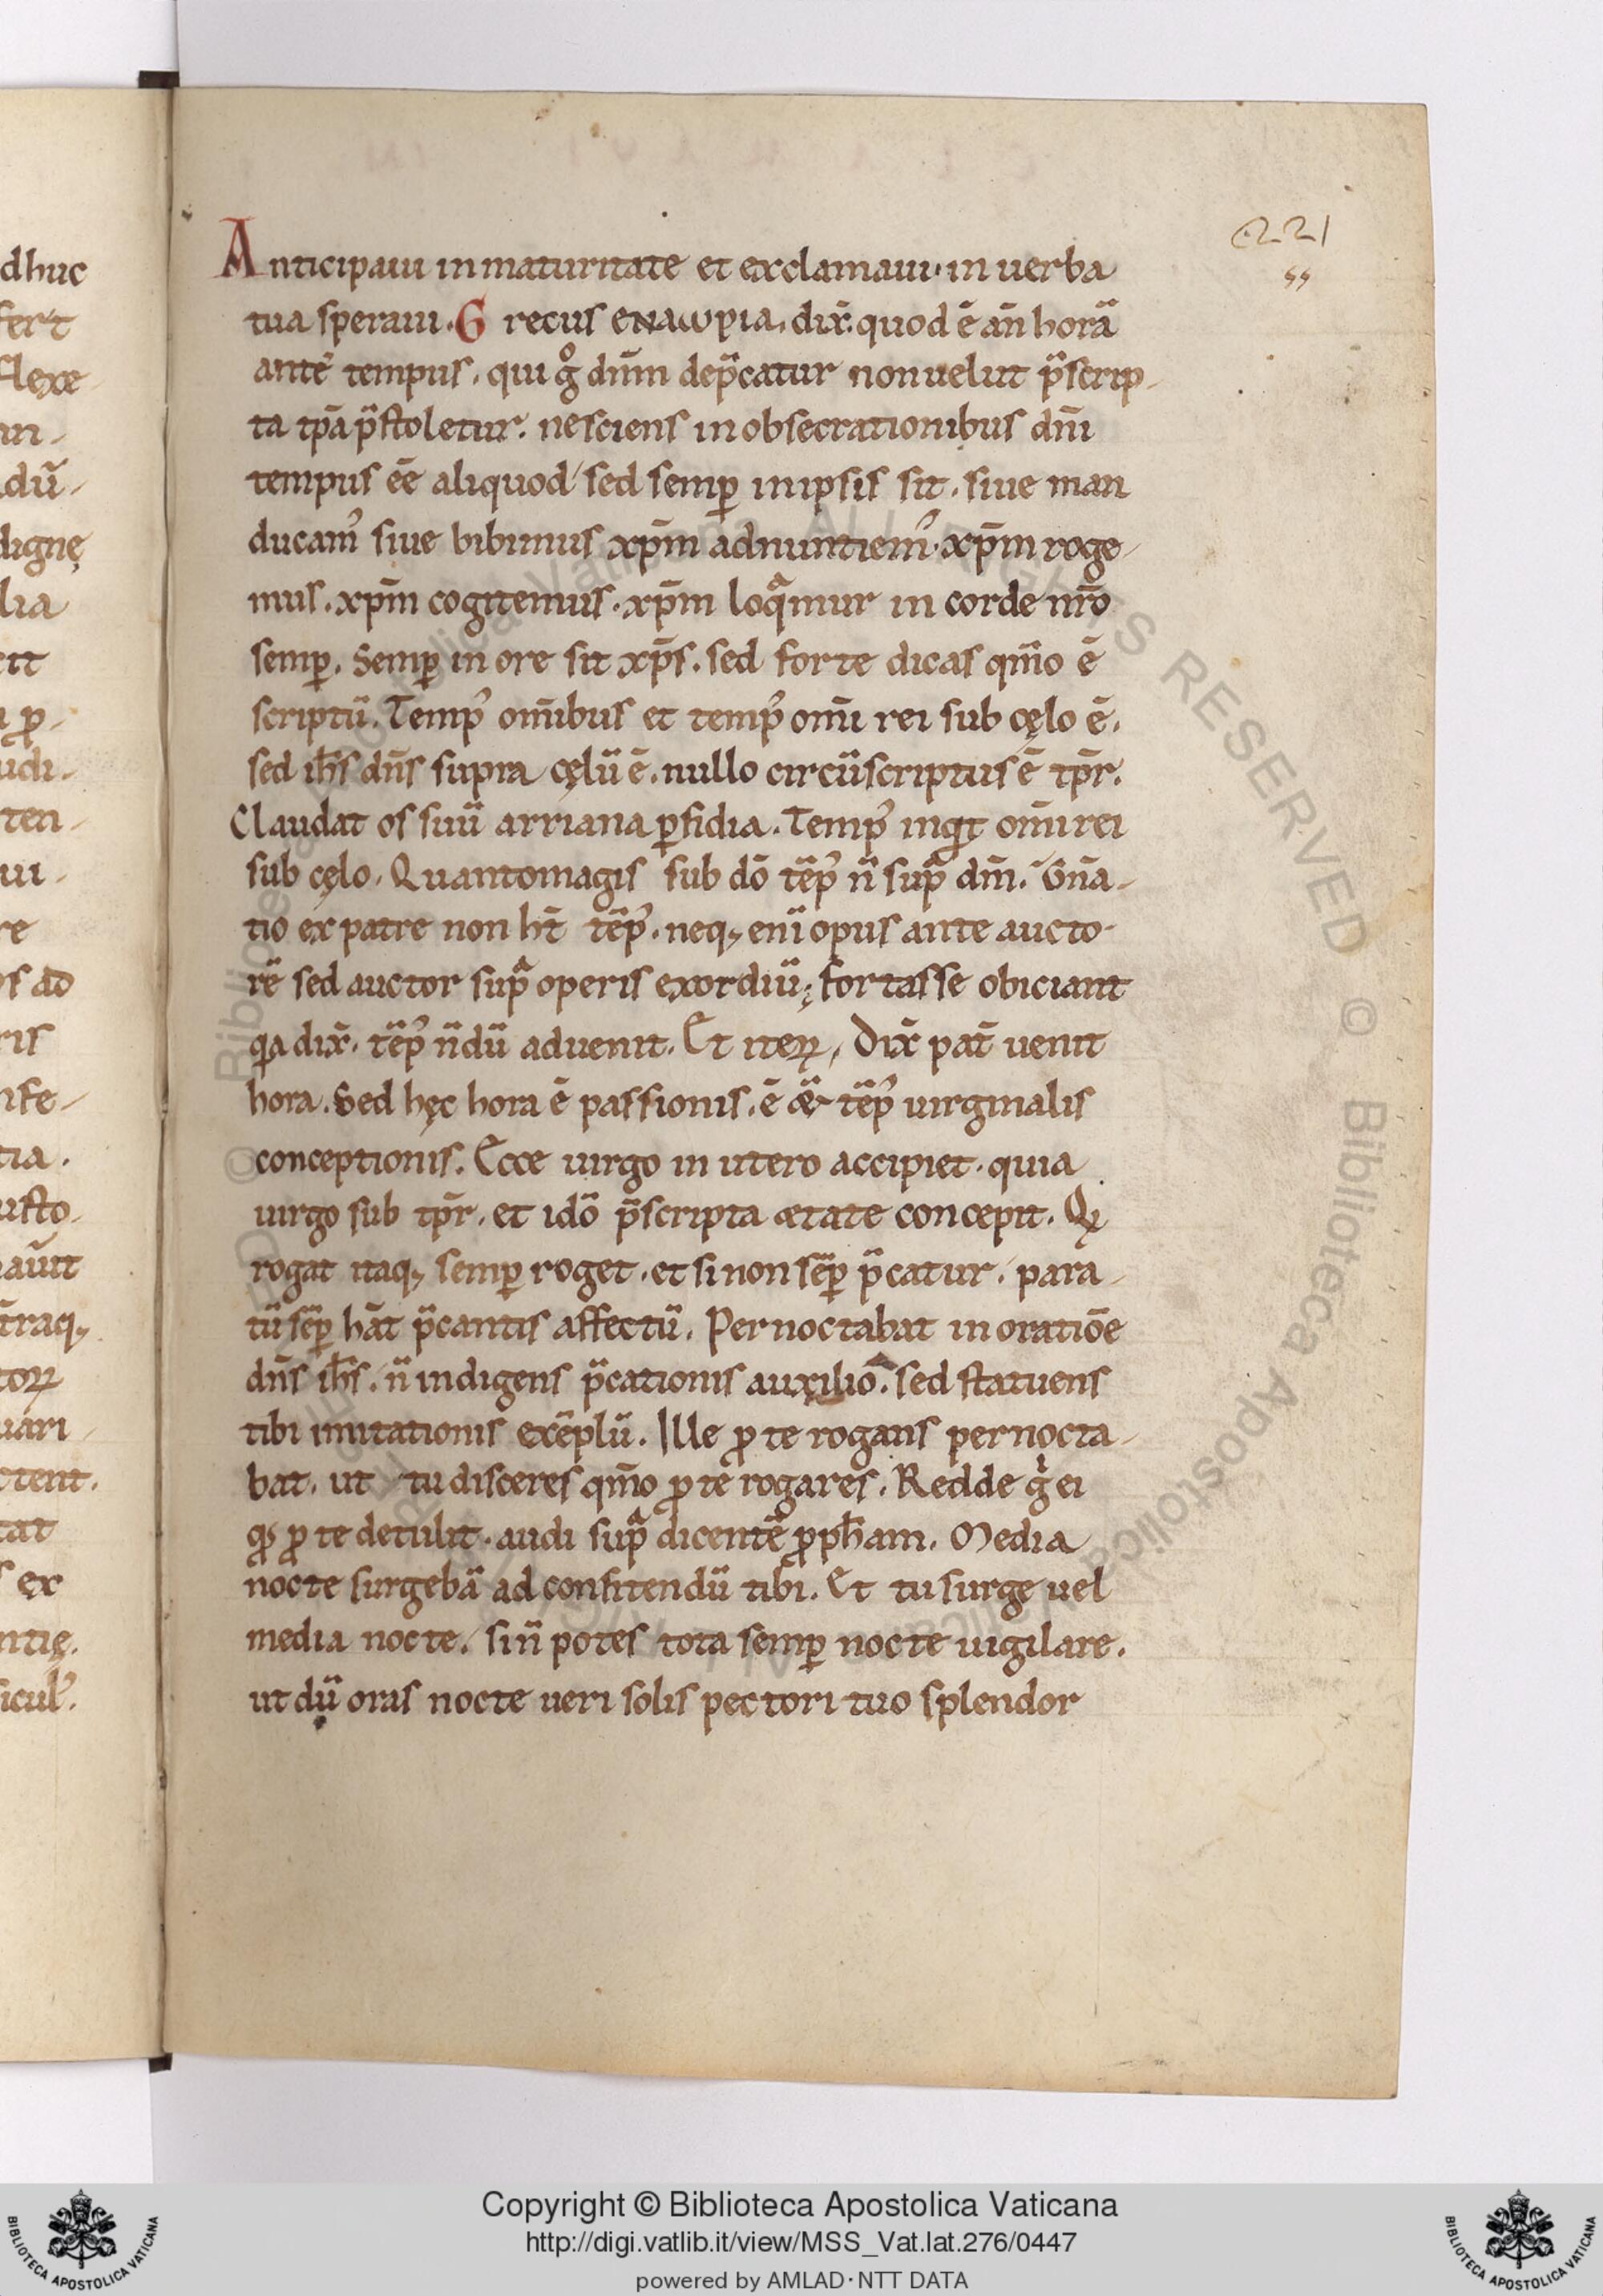 221
55
Anticipaui inmaturitate et exclamaui. in uerba
tua speraui. Grecus ENAWPIA. dix̄. quod ē an̄ horā
ante tempus. qui g̊ dn̄m dep̄catur non uelut p̄scrip-
ta tp̄a p̄stoletur. nesciens in obsecrationibus dn̄i
tempus ēe aliquod sed semꝑ in ipsis sit. siue man
ducam᾿ siue bibimus xp̄m adnuntiem᾿. xp̄m roge-
mus. xp̄m cogitemus. xp̄m loqͣmur in corde nr̄o
semꝑ. Semꝑ in ore sit xp̄s. sed forte dicas qm̄o ē
scriptū. Temp᾿ om̄ibus et temp᾿ om̄i rei sub cęlo ē.
sed ih̄s dn̄s supra cęlū ē. nullo circūscriptus ē tp̄r.
Claudat os suū arriana ꝑfidia. Temp᾿ inqͥt om̄i rei
sub cęlo. Quantomagis sub dō tēp᾿ n̄ supͣ dm̄. Gn̄a-
tio ex patre non ht̄ tēp᾿. neq; enī opus ante aucto-
rē sed auctor supͣ operis exordiū; fortasse obiciant
qͥa dix̄. tēp᾿ n̄dū aduenit. Et iteꝝ, Dix̄ pat̄ uenit
hora. Sed hęc hora ē passionis. ē & tēp᾿ uirginalis
conceptionis. Ecce uirgo in utero accipiet. quia
uirgo sub tp̄r. et idō p̄scripta ætate concepit. Qͥ
rogat itaq; semꝑ roget. et si non sēꝑ p̄catur. para-
tū sēꝑ hāt p̄cantis affectū. Pernoctabat in oratiōe
dn̄s ih̄s. n̄ indigens p̄cationis auxilio. sed statuens
tibi imitationis exēplū. Ille ꝓ te rogans pernocta-
bat. ut tu disceres qm̄o ꝓ te rogares. Redde g̊ ei
qͩ ꝓ te detulit. audi supͣ dicentē ꝓph̄am. Media
nocte surgebā ad confitendū tibi. Et tu surge uel
media nocte. si n̄ potes tota semꝑ nocte uigilare.
ut dū oras nocte ueri solis pectori tuo splendor
Copyright © Biblioteca Apostolica Vaticana
http://digi.vatlib.it/view/MSS_Vat.lat.276/0447
powered by AMLAD·NTT DATA
BIBLIOTECA APOSTOLICA VATICANA
BIBLIOTECA APOSTOLICA VATICANA